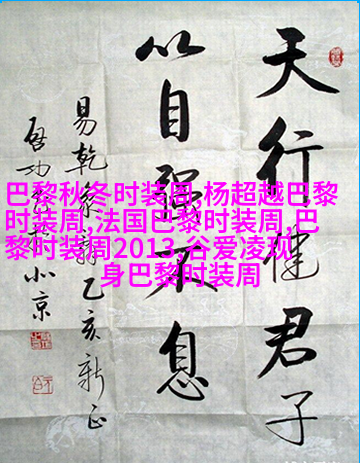 天行健君子
以自强不息
易乾乙亥新正
啓功北京
巴黎秋冬时装周,杨超越巴黎
时装周,法国巴黎时装周,巴
黎时装周2013,谷爱凌现
身巴黎时装周